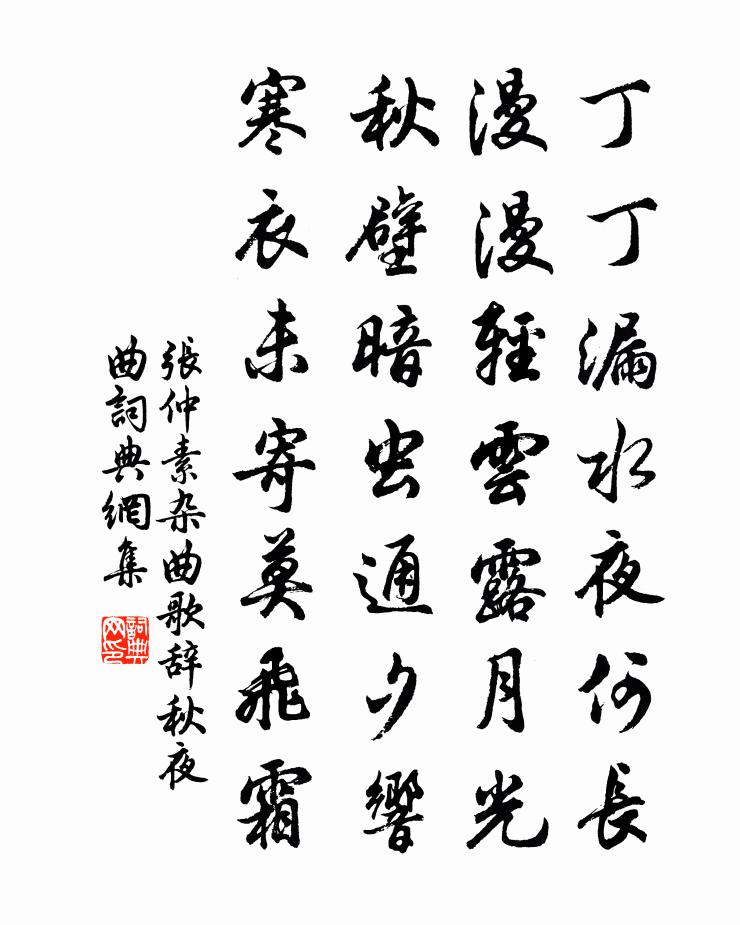 丁丁漏水夜何長
漫漫輕雲露月光
秋壁暗虫通夕響
寒衣未寄莫飛霜
張仲素杂曲歌辞秋夜
曲詞典網集
詞典
网印